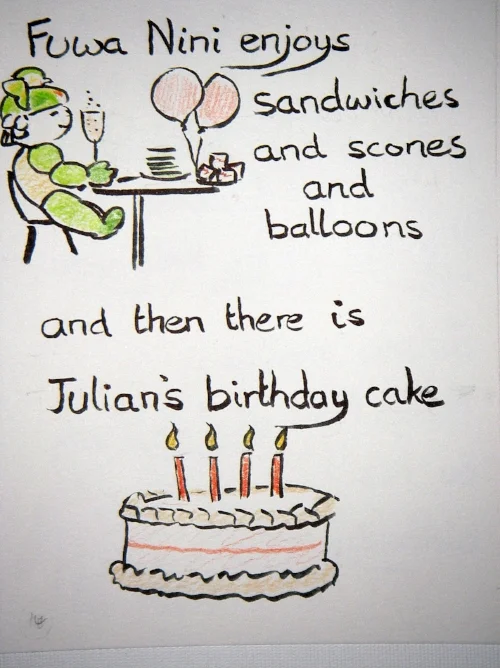 Fuwa Nini enjoys
sandwiches
and scones
and
balloons
and then there is
Julian's birthday cake